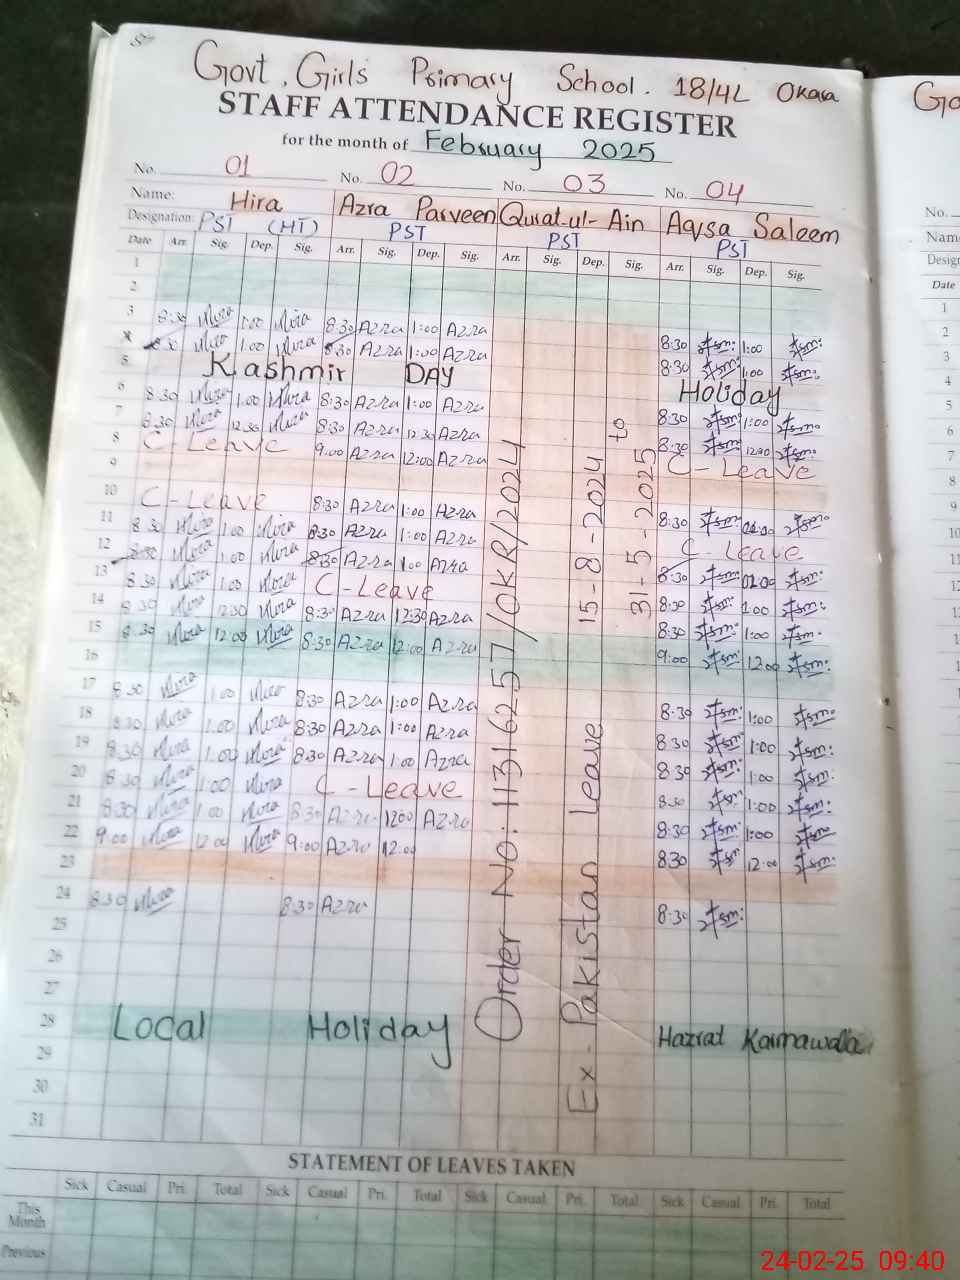 Govt. Girls Primary School. 18/4L Okara
STAFF ATTENDANCE REGISTER
for the month of February 2025
No. 01 No. 02 No. 03 No. 04
Name: Hira Azra Parveen Qurat-ul-Ain Aqsa Saleem
Designation: PST (HT) PST PST PST
Date Arr. Sig. Dep. Sig. Arr. Sig. Dep. Sig. Arr. Sig. Dep. Sig. Arr. Sig. Dep. Sig.
1
2
3 8:30 Hira 1:00 Hira 8:30 Azra 1:00 Azra 8:30 1:00
8:30 Hira 1:00 Hira 8:30 Azra 1:00 Azra 8:30 1:00
5 Kashmir DAY Holiday
6 8:30 Hira 1:00 Hira 8:30 Azra 1:00 Azra 8:30 1:00
7 8:30 Hira 12:30 Hira 8:30 Azra 12:30 Azra 8:30
8 C-Leave 9:00 Azra 12:00 Azra C-Leave
9
10 C-Leave 8:30 Azra 1:00 Azra 8:30
11 8:30 Hira 1:00 Hira 8:30 Azra 1:00 Azra C-Leave
12 8:30 Hira 1:00 Hira 8:30 Azra 1:00 Azra 8:30 01:00
13 8:30 Hira 1:00 Hira C-Leave 8:30 1:00
14 8:30 Hira 12:30 Hira 8:30 Azra 12:30 Azra 8:30 1:00
15 8:30 Hira 12:00 Hira 8:30 Azra 12:00 Azra 9:00 12:00
16
17 8:30 Hira 1:00 Hira 8:30 Azra 1:00 Azra 8:30 1:00
18 8:30 Hira 1:00 Hira 8:30 Azra 1:00 Azra 8:30 1:00
19 8:30 Hira 1:00 Hira 8:30 Azra 1:00 Azra 8:30 1:00
20 8:30 Hira 1:00 Hira C-Leave 8:30 1:00
21 8:30 Hira 1:00 Hira 8:30 Azra 12:00 Azra 8:30 1:00
22 9:00 Hira 12:00 Hira 9:00 Azra 12:00 8:30 12:00
23
24 8:30 Hira 8:30 Azra 8:30
25
26
27
28 Local Holiday Hazrat Karmawala
29
30
31
Order No: 11316257/OKR/2024
Ex-Pakistan Leave 15-8-2024 to
31-5-2025
STATEMENT OF LEAVES TAKEN
Sick Casual Pri. Total Sick Casual Pri. Total Sick Casual Pri. Total Sick Casual Pri. Total
This Month
Previous
Go
No.
Nam
Desig
Date
1
2
3
4
5
6
7
8
9
10
11
12
13
14
15
16
17
18
19
20
21
22
24-02-25 09:40